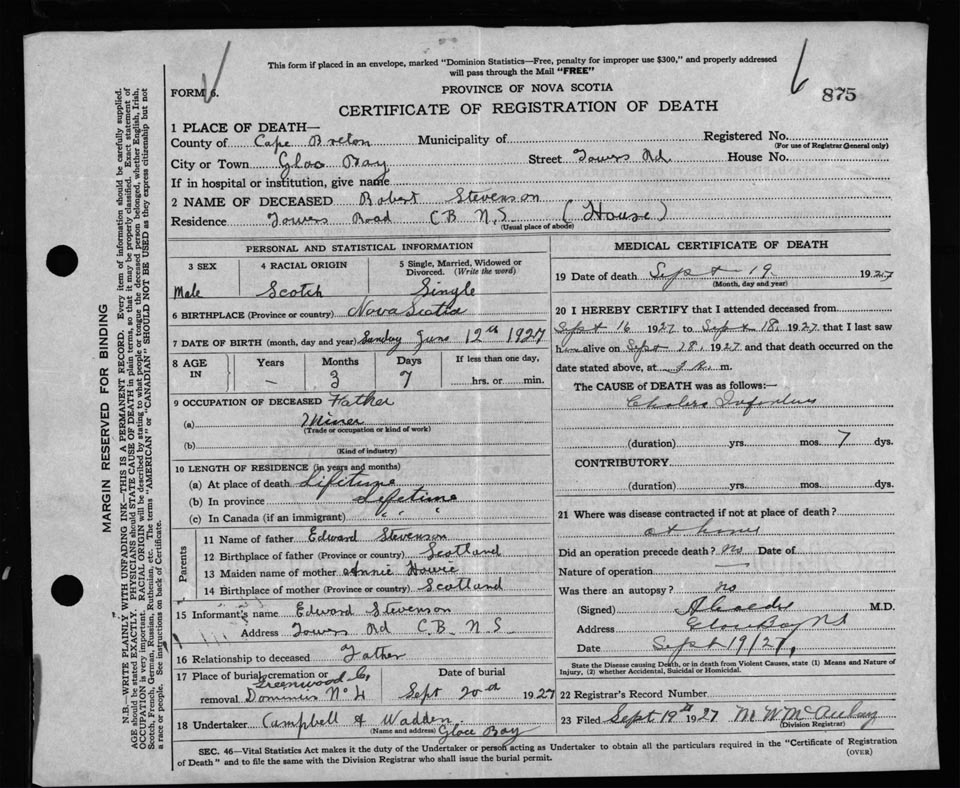 This form if placed in an envelope, marked "Dominion Statistics—Free, penalty for improper use $300," and properly addressed
will pass through the Mail "FREE"
FORM 6.
PROVINCE OF NOVA SCOTIA
875
CERTIFICATE OF REGISTRATION OF DEATH
1 PLACE OF DEATH—
County of Cape Breton Municipality of Registered No.
(For use of Registrar General only)
City or Town Glace Bay Street Towers Rd House No.
If in hospital or institution, give name
2 NAME OF DECEASED Robert Stevenson
Residence Towers Road C.B. N.S (House)
(Usual place of abode)
PERSONAL AND STATISTICAL INFORMATION
3 SEX 4 RACIAL ORIGIN 5 Single, Married, Widowed or
Divorced. (Write the word)
Male Scotch Single
6 BIRTHPLACE (Province or country) Nova Scotia
7 DATE OF BIRTH (month, day and year) Sunday June 12th 1927
8 AGE IN Years Months Days If less than one day,
— 3 7 hrs. or min.
9 OCCUPATION OF DECEASED Father
(a) Miner
(Trade or occupation or kind of work)
(b)
(Kind of industry)
10 LENGTH OF RESIDENCE (in years and months)
(a) At place of death Lifetime
(b) In province Lifetime
(c) In Canada (if an immigrant) " "
Parents
11 Name of father Edward Stevenson
12 Birthplace of father (Province or country) Scotland
13 Maiden name of mother Annie Howie
14 Birthplace of mother (Province or country) Scotland
15 Informant's name Edward Stevenson
Address Towers Rd C.B. N.S
16 Relationship to deceased Father
17 Place of burial, cremation or Date of burial
Greenwood C,
removal Dominion No 4 Sept 20th 1927
18 Undertaker Campbell & Wadden
(Name and address) Glace Bay
MEDICAL CERTIFICATE OF DEATH
19 Date of death Sept 19. 1927
(Month, day and year)
20 I HEREBY CERTIFY that I attended deceased from
Sept 16 1927 to Sept 18, 1927 that I last saw
him alive on Sept 18, 1927 and that death occurred on the
date stated above, at m.
The CAUSE of DEATH was as follows:—
Cholera Infantum
(duration) yrs. mos. 7 dys.
CONTRIBUTORY
(duration) yrs. mos. dys.
21 Where was disease contracted if not at place of death?
at home
Did an operation precede death? No Date of
Nature of operation —
Was there an autopsy? no
(Signed) M.D.
Address Glace Bay NS
Date Sept 19/27,
State the Disease causing Death, or in death from Violent Causes, state (1) Means and Nature of
Injury, (2) whether Accidental, Suicidal or Homicidal.
22 Registrar's Record Number
23 Filed Sept 19th 1927 M W McAulay
(Division Registrar)
SEC. 46—Vital Statistics Act makes it the duty of the Undertaker or person acting as Undertaker to obtain all the particulars required in the "Certificate of Registration
of Death" and to file the same with the Division Registrar who shall issue the burial permit.
(OVER)
MARGIN RESERVED FOR BINDING
N.B.—WRITE PLAINLY WITH UNFADING INK—THIS IS A PERMANENT RECORD. Every item of information should be carefully supplied.
AGE should be stated EXACTLY. PHYSICIANS should STATE CAUSE OF DEATH in plain terms, so that it may be properly classified. Exact statement of
OCCUPATION is very important. RACIAL ORIGIN will be described by stating to what people or tongue the deceased person belonged, whether English, Irish,
Scotch, French, German, Russian, Ruthenian, etc. The terms "AMERICAN" or "CANADIAN" SHOULD NOT BE USED as they express citizenship but not
a race or people. See instructions on back of Certificate.